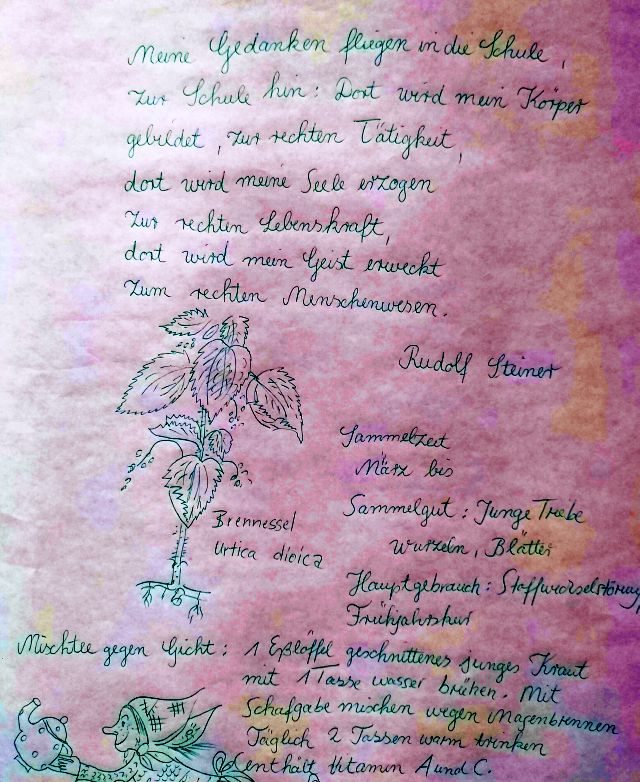 Meine Gedanken fliegen in die Schule,
zur Schule hin: Dort wird mein Körper
gebildet, zur rechten Tätigkeit,
dort wird meine Seele erzogen
zur rechten Lebenskraft,
dort wird mein Geist erweckt
zum rechten Menschenwesen.
Rudolf Steiner
Sammelzeit
März bis
Sammelgut: Junge Triebe
Wurzeln, Blätter
Brennessel
Urtica dioica
Hauptgebrauch: Stoffwechselstörung
Frühjahrskur
Mischtee gegen Gicht: 1 Eßlöffel geschnittenes junges Kraut
mit 1 Tasse wasser brühen. Mit
Schafgabe mischen wegen Magenbrennen
Täglich 2 Tassen warm trinken
enthält Vitamin A und C.